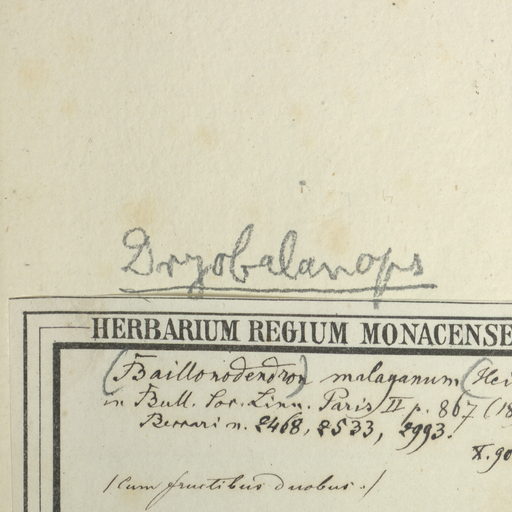 Dryobalanops
HERBARIUM REGIUM MONACENSE
(Baillonodendron) malayanum (Hei
in Bull. Soc. Linn. Paris II p. 867 (18
Beccari n. 2468, 2533, 2993.
X. 90
/Cum fructibus duobus./